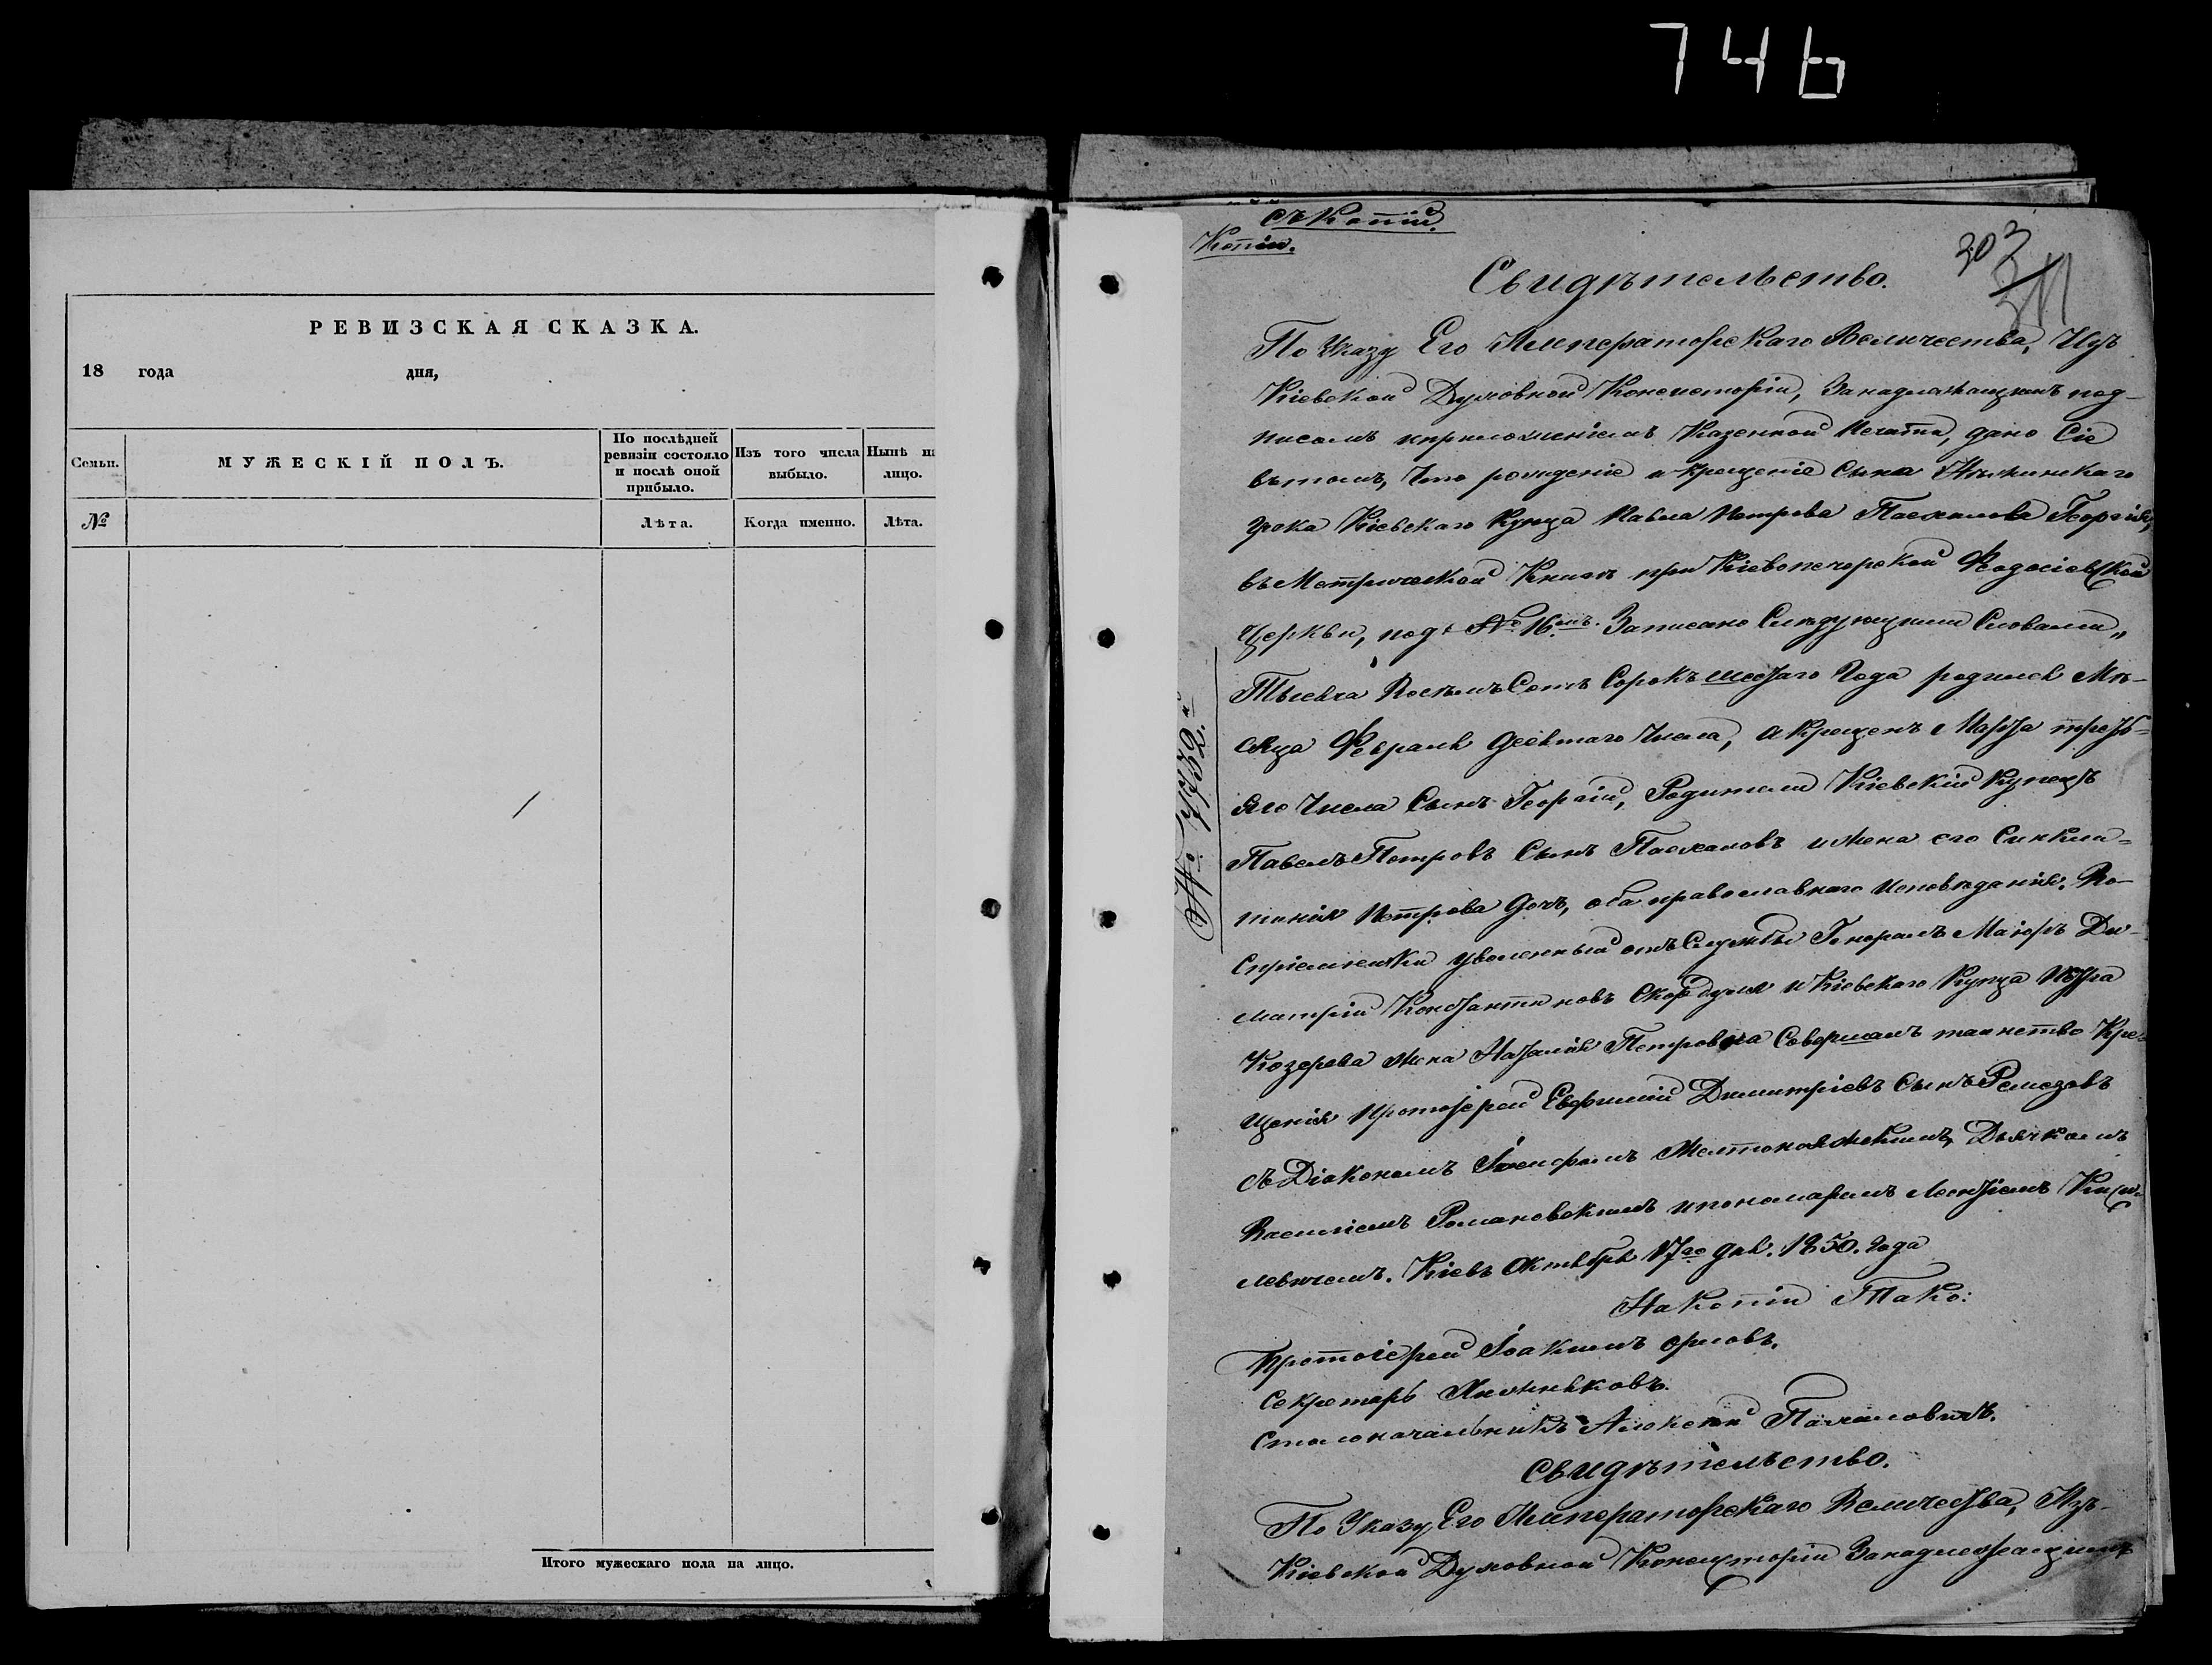 746
РЕВИЗСКАЯ СКАЗКА.
18 года дня,
Семьи.
МУЖЕСКІЙ ПОЛЪ.
По послѣдней ревизіи состояло и послѣ оной прибыло.
Изъ того числа выбыло.
Нынѣ на лицо.
№
Лѣта.
Когда именно.
Лѣта.
Итого мужескаго пола на лицо.
съ Копіи.
Копія.
303
Свидѣтельство.
По Указу Его Императорскаго Величества, Изъ
Кіевской Духовной Консисторіи, Занадлежащимъ под-
писомъ иприложеніемъ Казенной Печати, дано Сіе
втомъ, Что рожденіе и крещеніе Сына Нѣжинскаго
Грека Кіевскаго Купца Павла Петрова Пасхалова Георгія,
въ Метрической Книгѣ при Кіевопечерской Феодосіевской
Церкви, подъ № 16.мъ Записано Слѣдующими Словами„
Тысяча Восѣмъ Сотъ Сорокъ шестаго Года родился Мѣ-
сяца Февраля девятаго Числа, а Крещенъ Марта треть-
яго Числа Сынъ Георгій, Родители Кіевскій Купецъ
Павелъ Петровъ Сынъ Пасхаловъ и Жена его Синкли-
тикія Петрова дочь, оба православнаго Исповѣданія. Во-
спріемники уволенный отъ Службы Генералъ Маіоръ Ди-
митрій Константиновъ и Кіевскаго Купца Петра
Козерева Жена Наталія Петровна Совершалъ таинство Кре-
щенія Протоіерей Евфимій Димитріевъ Сынъ Ремезовъ
съ Діакономъ Дьячкомъ
Василіемъ Романовскимъ ипономаремъ
левичемъ. Кіевъ Октября 17го дня. 1850. Года
На Копіи Тако:
Протоіерей Іоакимъ Орловъ.
Секретарь
Столоначальникъ Алексѣй
Свидѣтельство.
По Указу Его Императорскаго Величества, Изъ-
Кіевской Духовной Консисторіи Занадлежащимъ
№ 7732.